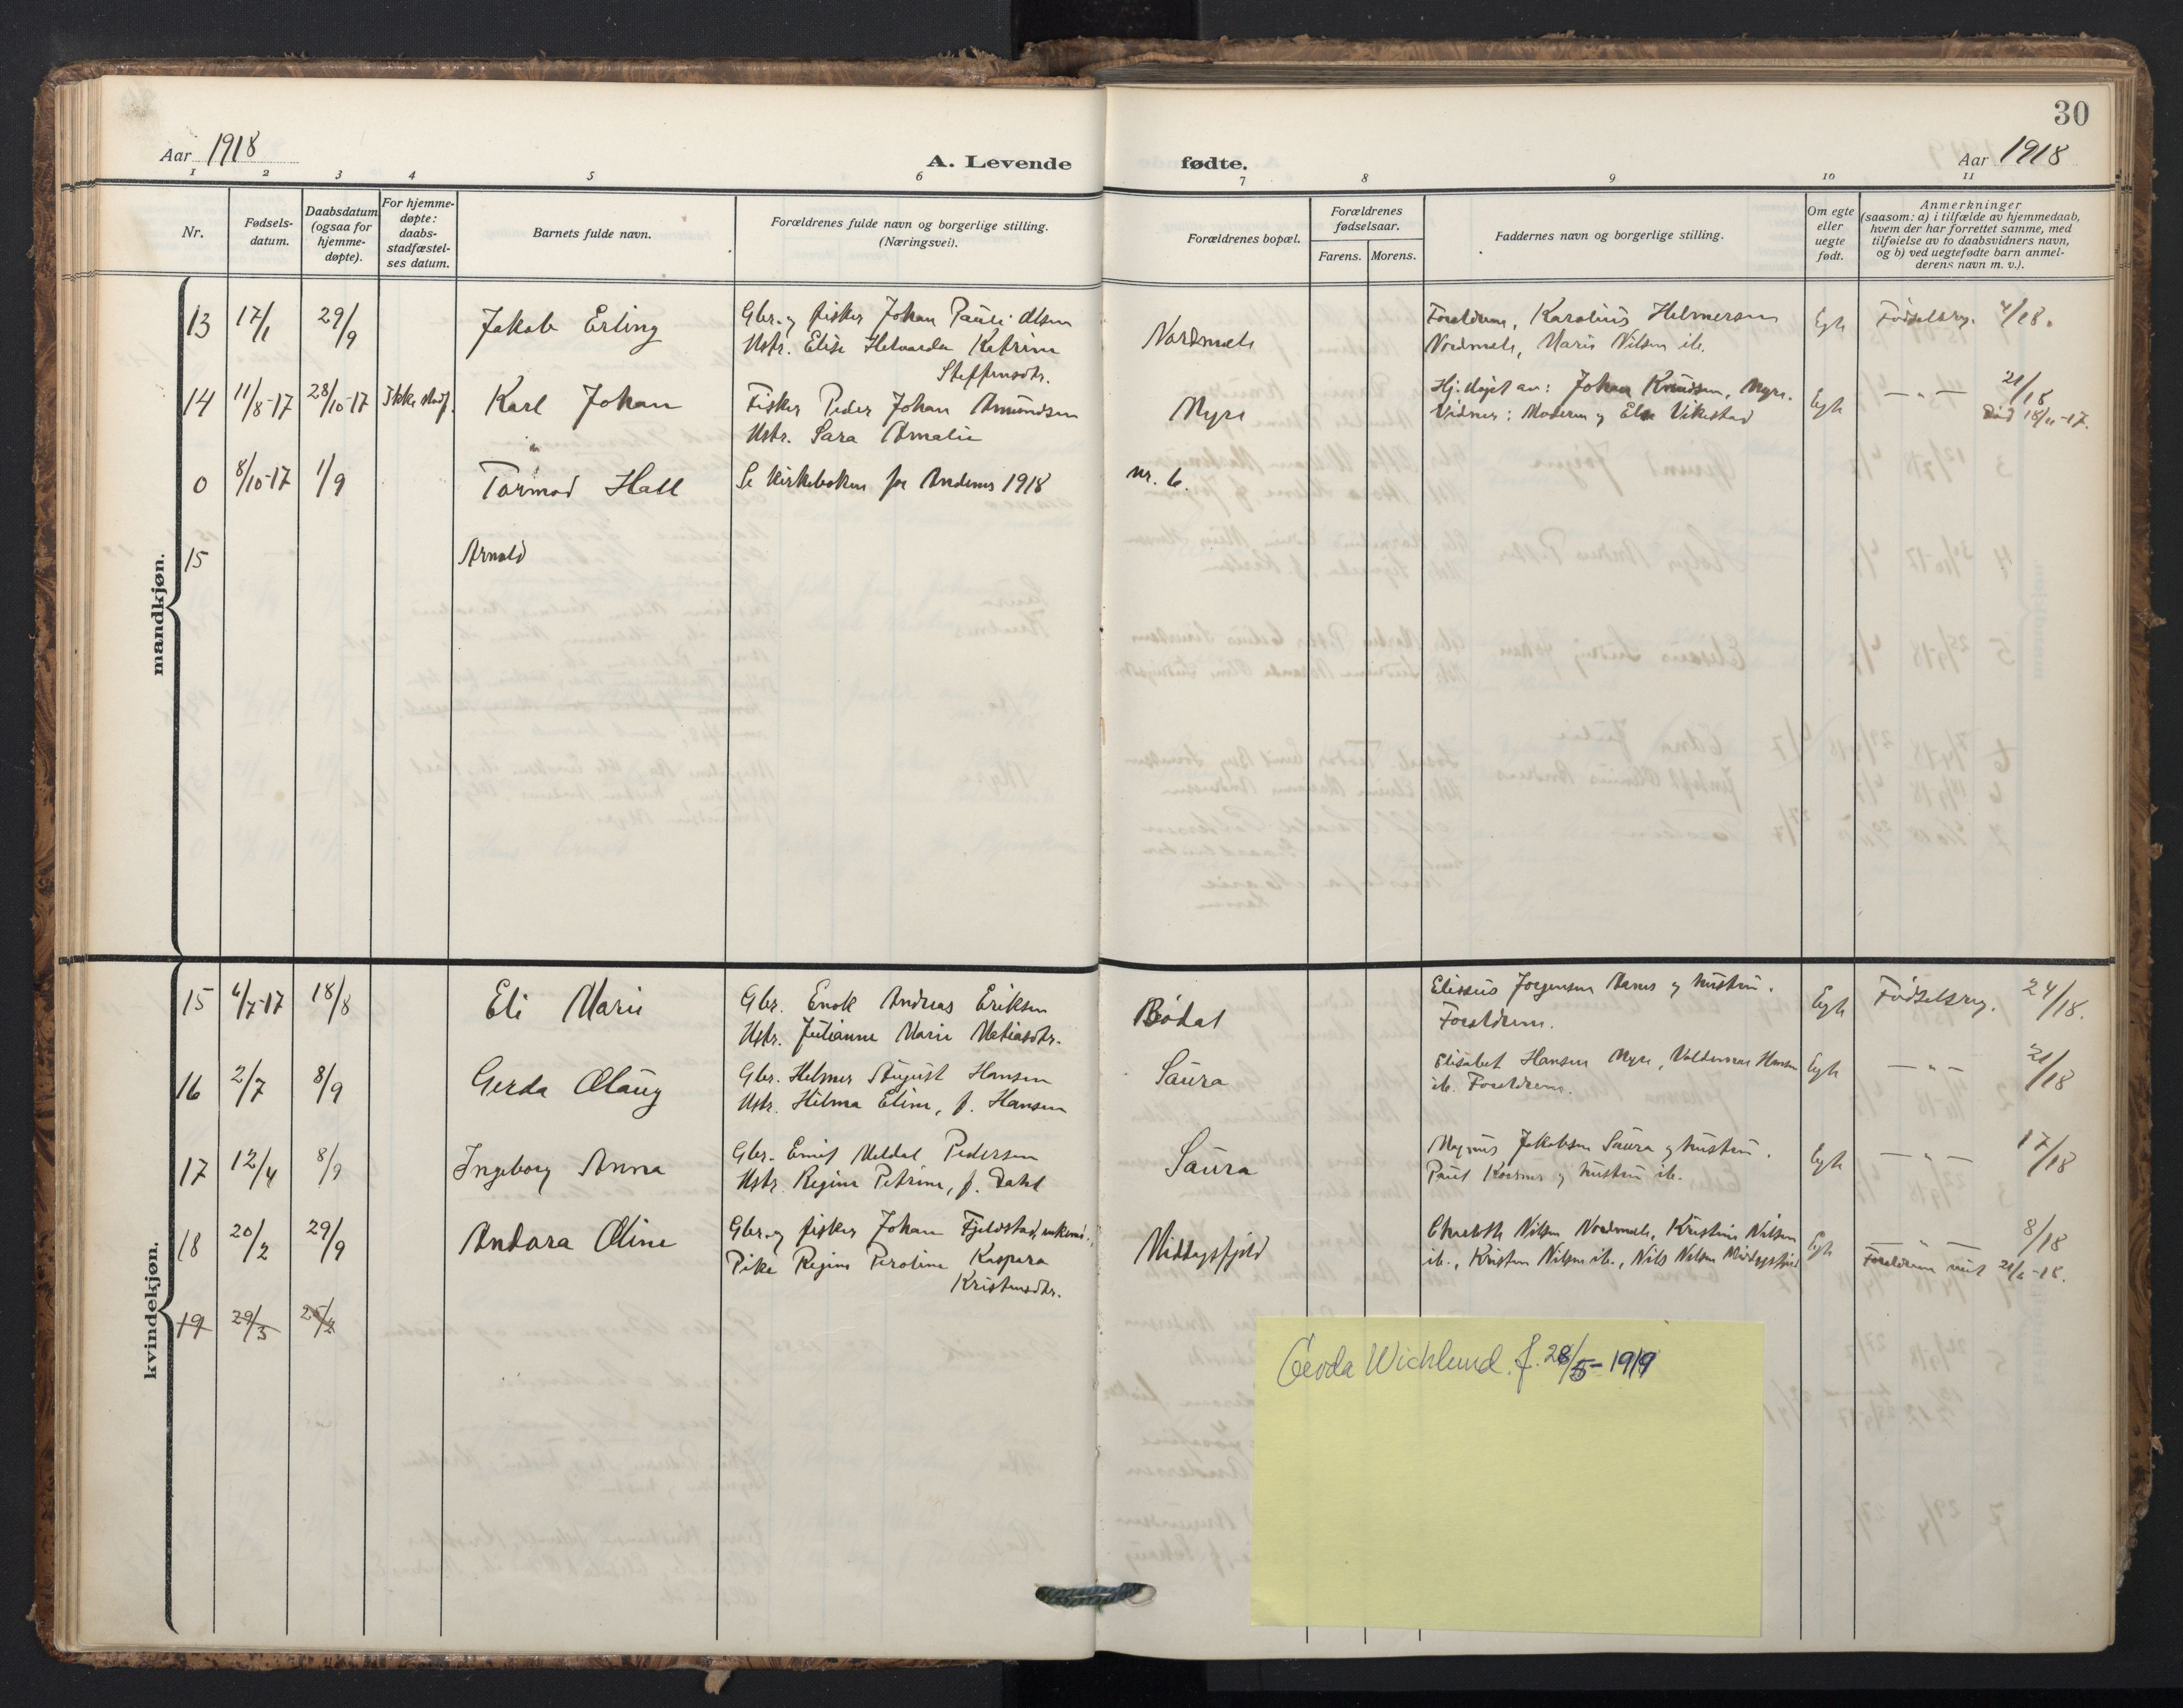 30
Aar 1918
A. Levende
fødte.
Aar 1918
1 2 3 4 5 6 7 8 9 10 11
Nr.
Fødsels-
datum.
Daabsdatum
(ogsaa for
hjemme-
døpte).
For hjemme-
døpte:
daabs-
stadfæstel-
ses datum.
Barnets fulde navn.
Forældrenes fulde navn og borgerlige stilling.
(Næringsvei).
Forældrenes bopæl.
Forældrenes
fødselsaar.
Farens. Morens.
Faddernes navn og borgerlige stilling.
Om egte
eller
uegte
født.
Anmerkninger
(saasom: a) i tilfælde av hjemmedaab,
hvem der har forrettet samme, med
tilføielse av to daabsvidners navn,
og b) ved uegtefødte barn anmel-
derens navn m. v.).
mandkjøn.
13 17/1 29/9 Jakob Erling Gbr. og fisker Johan Pauli Olsen Nordmele Forældrene, Karolius Helmersen Egte Fødselsreg. 4/18.
Hstr. Elise Helvarda Katrine Nordmele, Marie Nilsen ib.
Steffensdtr.
14 11/8-17 28/10-17 Ikke stadf. Karl Johan Fisker Peder Johan Amundsen Myre Hj. døpt av: Johan Knudsen, Myre. Egte — " — 21/18
Hstr. Sara Amalie Vidner: Moderen og Else Vikestad Død 18/11-17.
0 8/10-17 1/9 Tormod Hall Se Kirkeboken for Andenes 1918 nr. 6.
15 Arnold
kvindekjøn.
15 4/7-17 18/8 Eli Marie Gbr. Enok Andreas Eriksen Bødal Elisæus Jørgensen Aanes og hustru. Egte Fødselsreg. 24/18.
Hstr. Julianne Marie Matiasdtr. Forældrene.
16 2/7 8/9 Gerda Olaug Gbr. Helmer August Hansen Saura Elisabet Hansen Myre, Valdemar Hansen Egte — " — 21/18
Hstr. Hilma Eline, f. Hansen ib. Forældrene.
17 12/4 8/9 Ingeborg Anna Gbr. Emil Meldal Pedersen Saura Magnus Jakobsen Saura og hustru. Egte — " — 17/18
Hstr. Regine Petrine, f. Dahl Paul Korsnes og hustru ib.
18 20/2 29/9 Andora Oline Gbr. og fisker Johan Fjeldstad, enkem. Middagsfjeld Nilsen Nordmele, Kristine Nilsen Egte — " — 8/18
Pike Regine Peroline Kaspara ib., Kristen Nilsen ib., Nils Nilsen Middagsfjeld Forældrene viet 21/6-18.
Kristensdtr.
19 29/3 25/2
Gerda Wichlund f. 28/5-1919